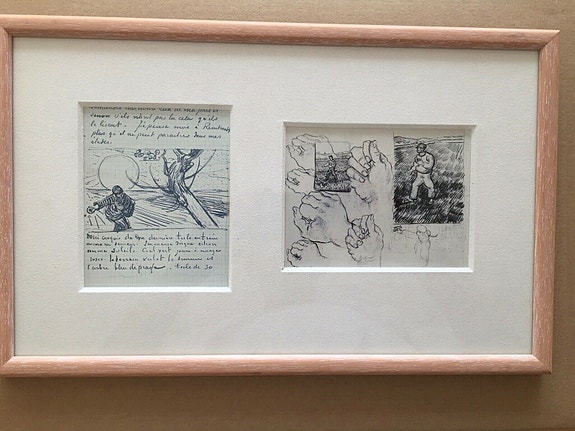 sinon s'ils n'ont pas lu cela qu'ils
le lisent. Je pense moi à Rembrandt
plus qu'il ne peut paraître dans mes
études.
Voici croquis de ma dernière toile en train
encore un semeur. Immense disque citron
comme soleil. Ciel vert jaune à nuages
roses. le terrain violet le semeur et
l'arbre bleu de prusse. toile de 30